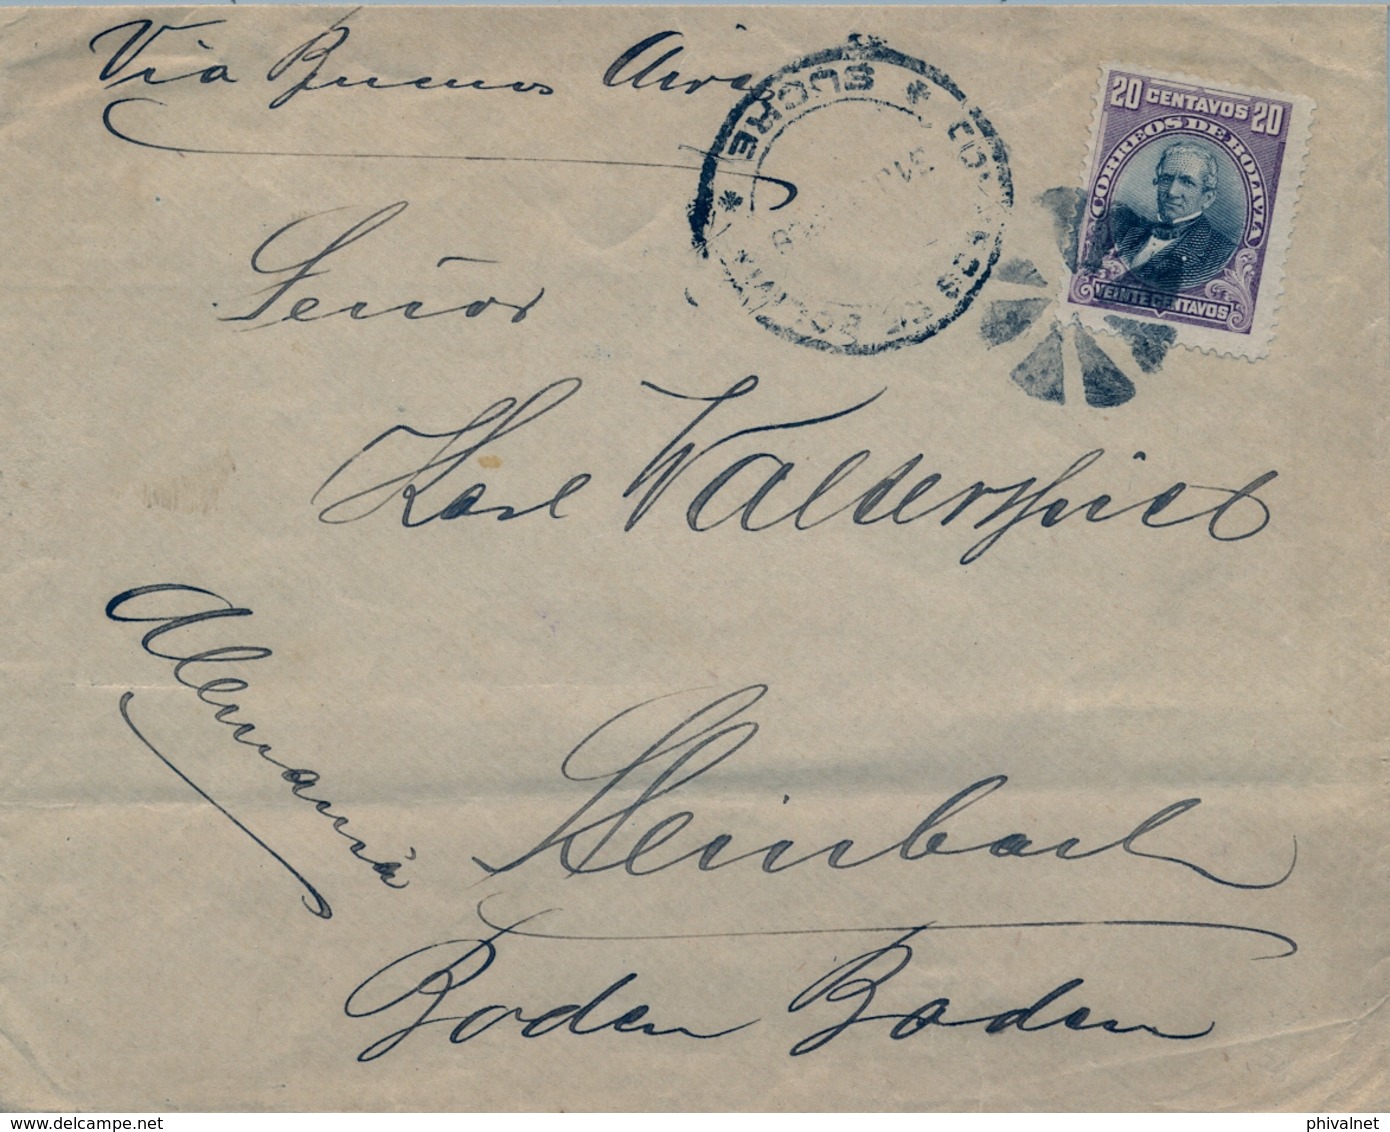 Via Buenos Aires
20 CENTAVOS 20
CORREOS DE BOLIVIA
VEINTE CENTAVOS
* SUCRE *
CORREOS DE BOLIVIA
31
Señor
Karl Walderspiel
Alemania
Steinbach
Baden Baden
www.delcampe.net
phivalnet